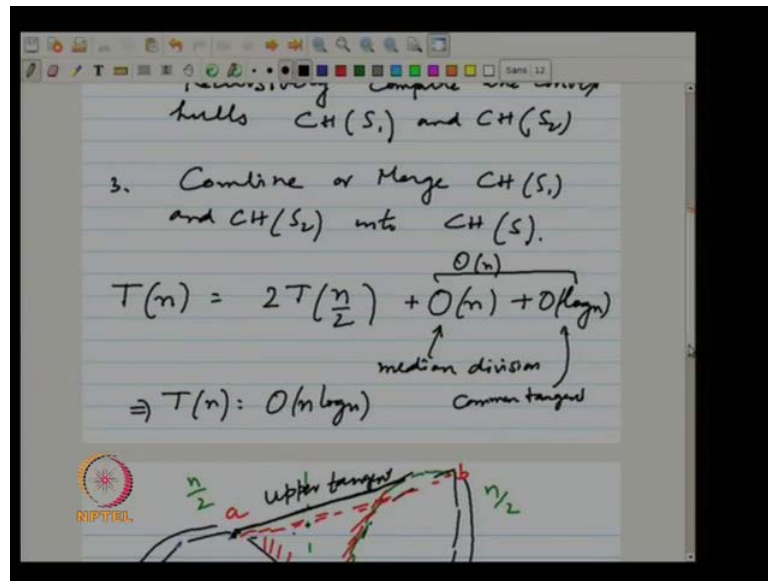 Sans 12
hulls CH(S₁) and CH(S₂)
3. Combine or Merge CH(S₁)
and CH(S₂) into CH(S).
O(n)
T(n) = 2T(n/2) + O(n) + O(logn)
median division
common tangent
⇒ T(n): O(n logn)
n/2 a upper tangent b n/2
NPTEL